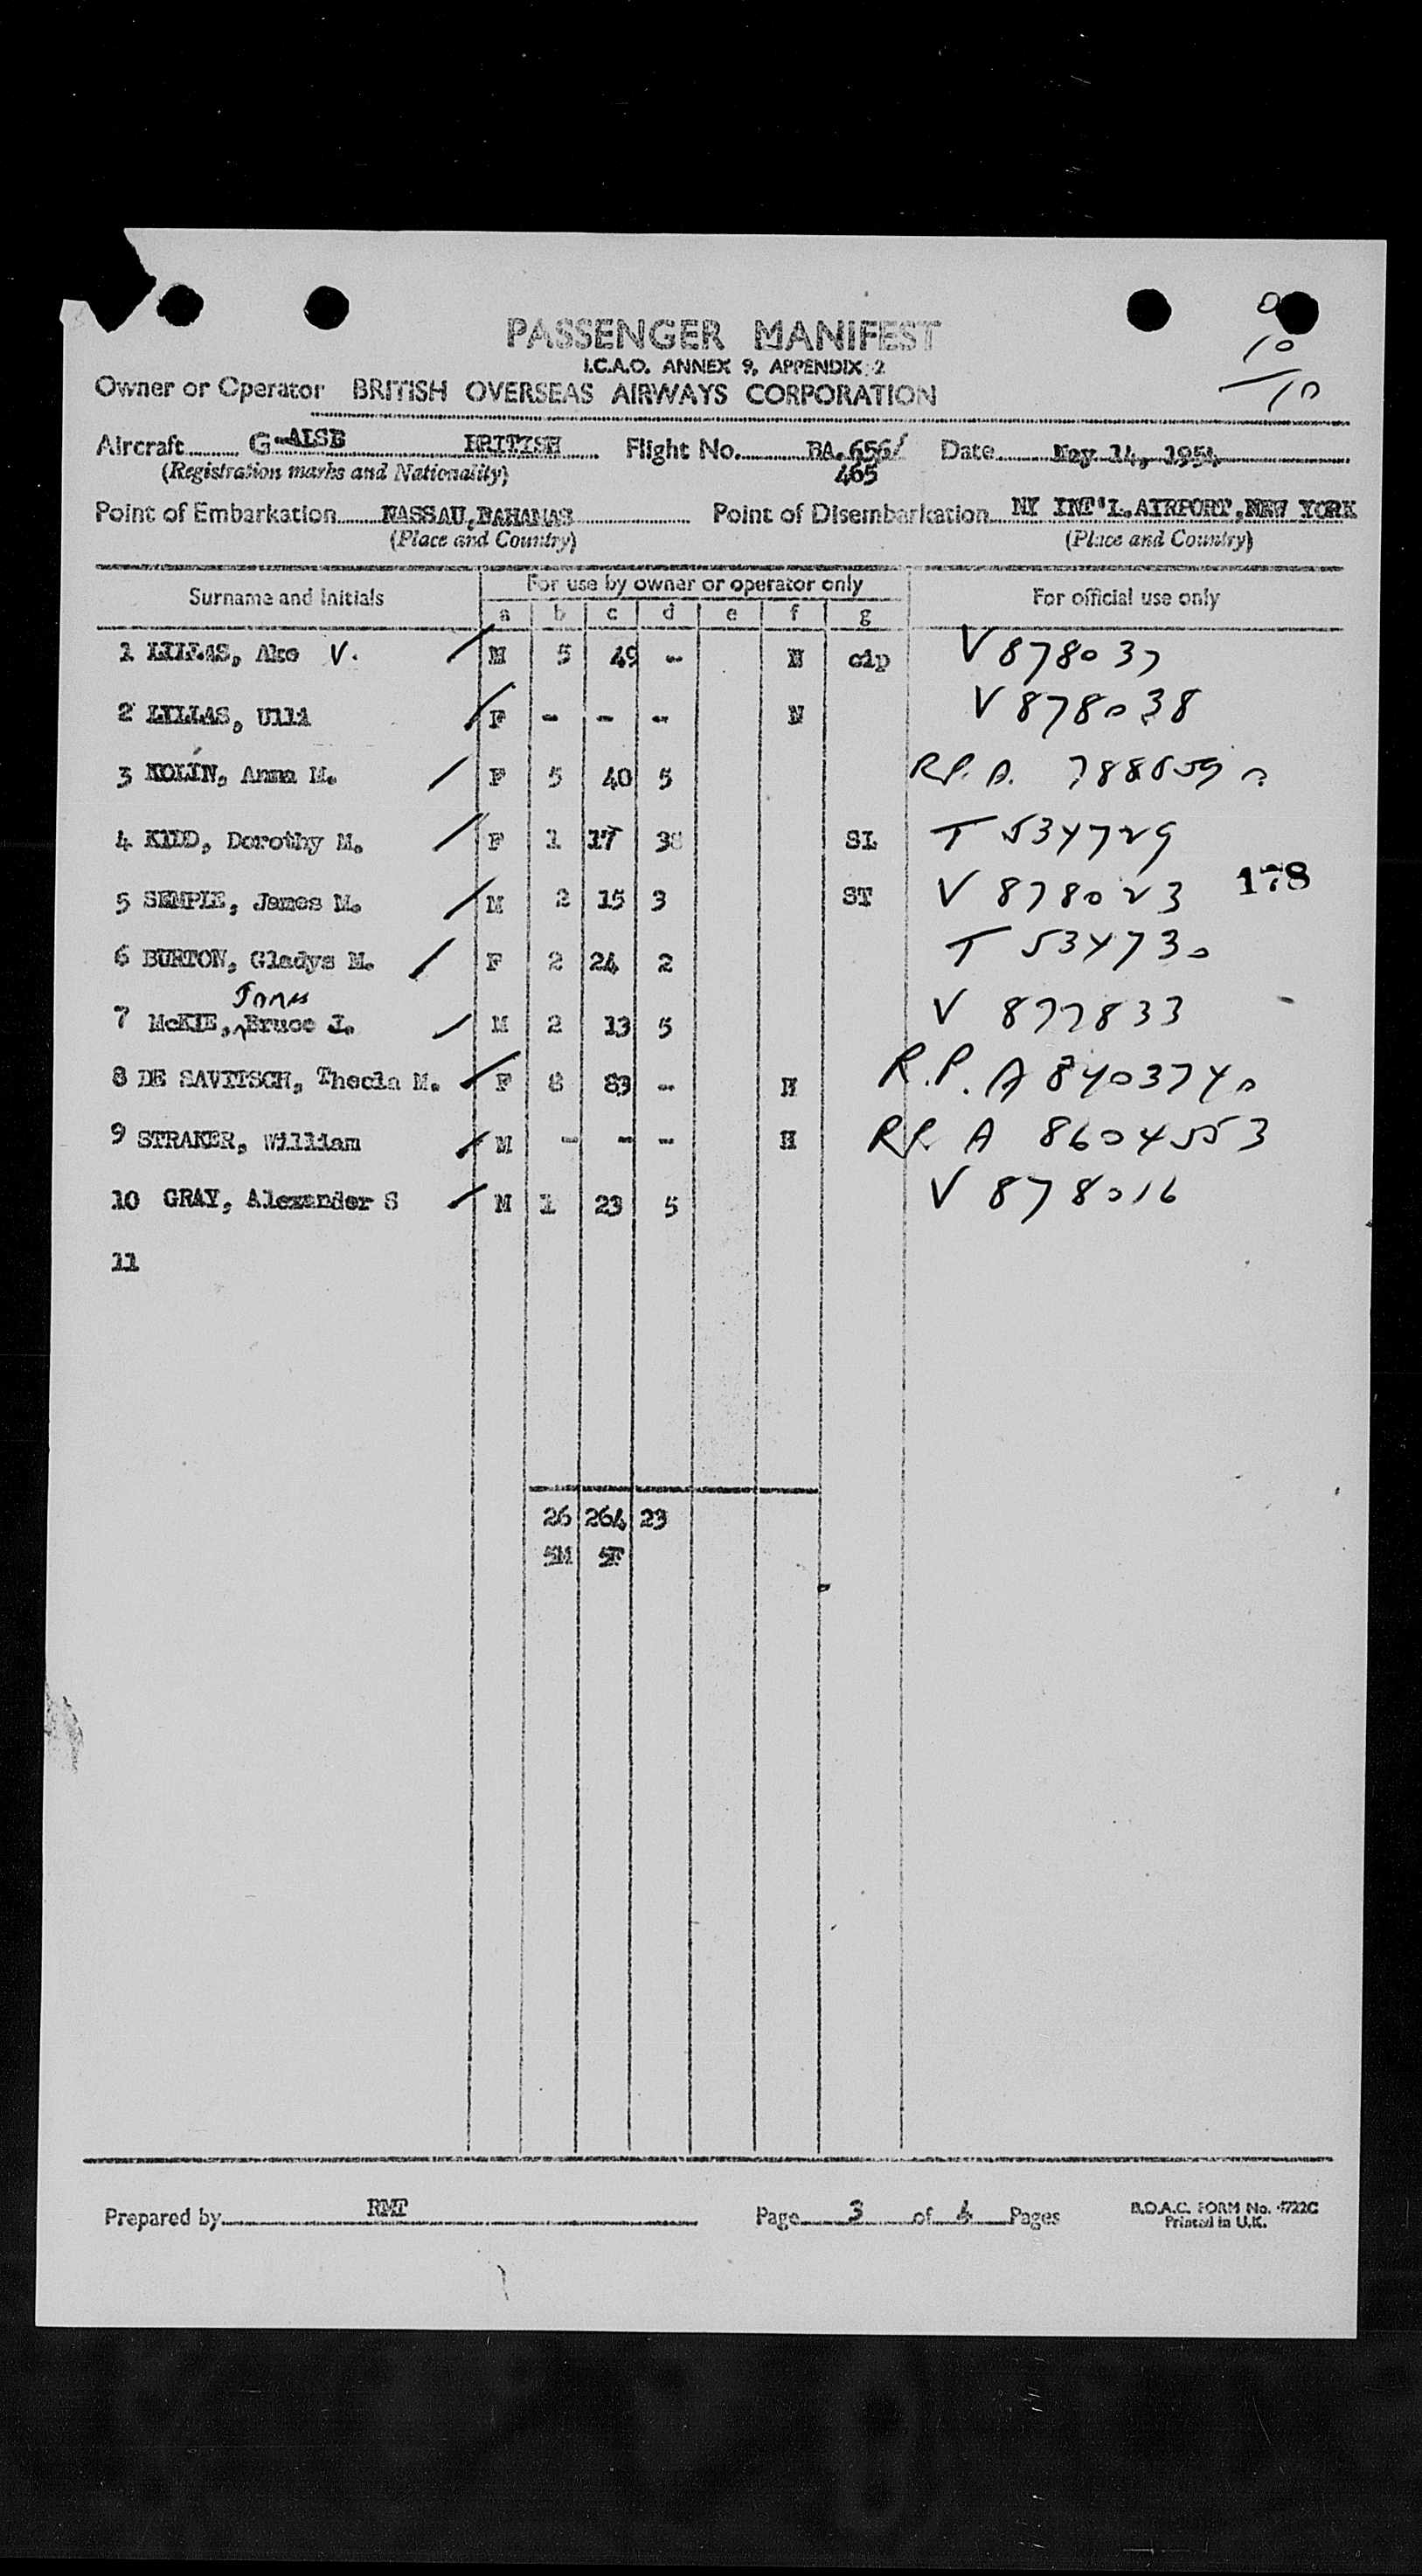 0
10
10
PASSENGER MANIFEST
I.C.A.O. ANNEX 9, APPENDIX 2
Owner or Operator BRITISH OVERSEAS AIRWAYS CORPORATION
Aircraft G-ALSB BRITISH Flight No. BA.656/ Date May 14, 1954
(Registration marks and Nationality) 465
Point of Embarkation NASSAU, BAHAMAS Point of Disembarkation NY INT'L. AIRPORT, NEW YORK
(Place and Country) (Place and Country)
Surname and initials For use by owner or operator only For official use only
a b c d e f g
1 LILLAS, Ake V. M 5 49 - N cip V 878037
2 LILLAS, Ulli F - - - N V 878038
3 KOLIN, Anna M. F 5 40 5 R.P. A. 7886590
4 KIDD, Dorothy M. F 1 17 3 SL T 534729
5 SEMPLE, James M. M 2 15 3 ST V 878023 178
6 BURTON, Gladys M. F 2 24 2 T 534730
Jones
7 McKIE, Bruce J. M 2 13 5 V 877833
8 DE SAVITSCH, Thecla M. F 8 83 - N R.P. A 8403740
9 STRAKER, William M - - - N R.P. A 8604553
10 GRAY, Alexander S M 1 23 5 V 878016
11
26 264 23
5M 5F
Prepared by RMT Page 3 of 4 Pages B.O.A.C. FORM No. 1722C
Printed in U.K.